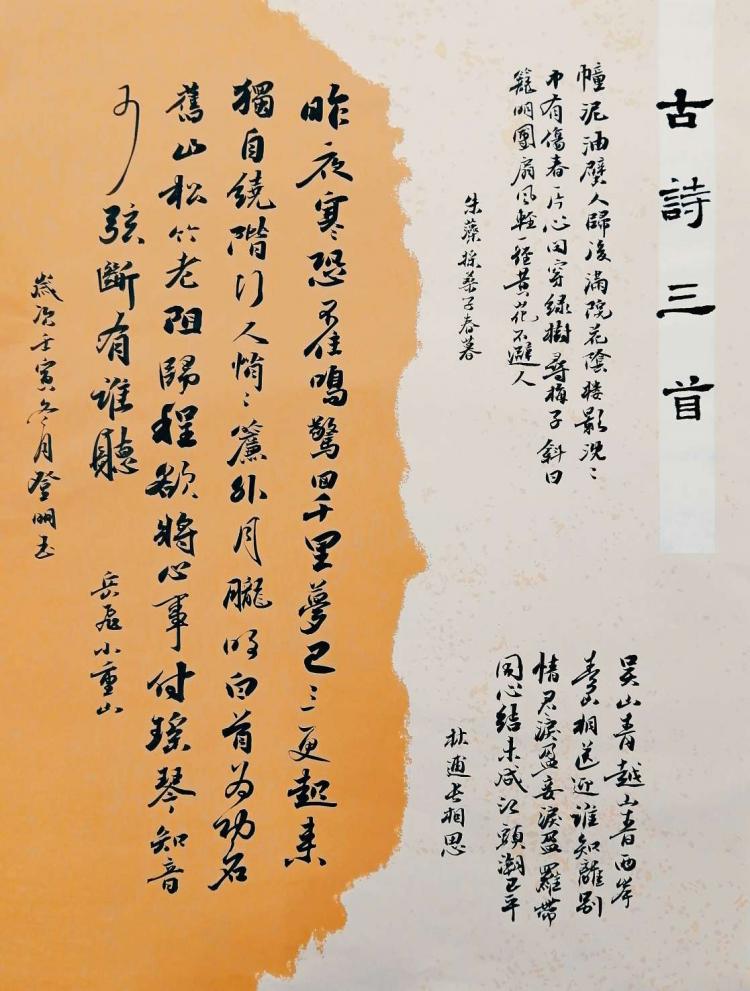 古詩三首
幢泥油壁人歸後滿院花陰樓影沉〻
中有傷春一片心閒穿綠樹尋梅子斜日
籠明團扇風輕一徑黄花不避人
朱藻採桑子春暮
吳山青越山青西岸
青山相送迎誰知離別
情君淚盈妾淚盈羅帶
同心結未成江頭潮已平
林逋長相思
昨夜寒恐不住鳴驚回千里夢已三更起来
獨自繞階行人悄〻簾外月朧明白首為功名
舊山松竹老阻歸程欲將心事付瑤琴知音
少弦斷有誰聽
岳飛小重山
歲次壬寅冬月登明書